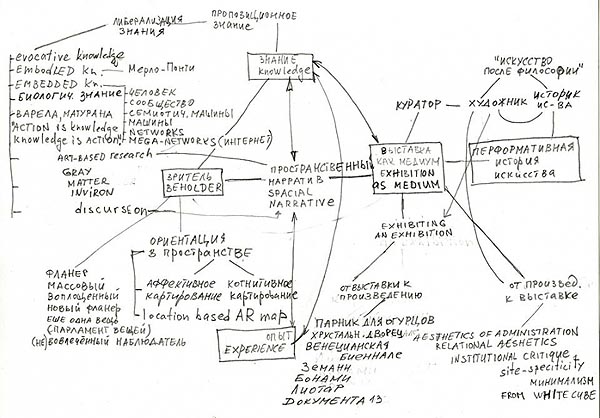 ЛИБЕРАЛИЗАЦИЯ
ЗНАНИЯ
ПРОПОЗИЦИОННОЕ
ЗНАНИЕ
ЗНАНИЕ
knowledge
evocative knowledge
EmbodLED Kn.
Мерло-Понти
EMBEDDED Kn.
БИОЛОГИЧ. ЗНАНИЕ
ЧЕЛОВЕК
СООБЩЕСТВО
СЕМИОТИЧ. МАШИНЫ
МАШИНЫ
NETWORKS
MEGA-NETWORKS (ИНТЕРНЕТ)
ВАРЕЛА, НАТУРАНА
"ACTION is knowledge
Knowledge is ACTION"
ART-BASED research
GRAY
MATTER
INVIRON
discurseon
ЗРИТЕЛЬ
BEHOLDER
ПРОСТРАНСТВЕННЫЙ
НАРРАТИВ
SPACIAL
NARRATIVE
"ИСКУССТВО
ПОСЛЕ ФИЛОСОФИИ"
КУРАТОР
ХУДОЖНИК
ИСТОРИК
ИС-ВА
ВЫСТАВКА
КАК МЕДИУМ
EXHIBITION
AS MEDIUM
ПЕРФОРМАТИВНАЯ
ИСТОРИЯ
ИСКУССТВА
EXHIBITING
AN EXHIBITION
ОРИЕНТАЦИЯ
В ПРОСТРАНСТВЕ
АФФЕКТИВНОЕ
КАРТИРОВАНИЕ
КОГНИТИВНОЕ
КАРТИРОВАНИЕ
location based AR map
ФЛАНЕР
МАССОВЫЙ
ВОПЛОЩЕННЫЙ
НОВЫЙ ФЛАНЕР
ЕЩЕ ОДНА ВЕЩЬ
(ПАРЛАМЕНТ ВЕЩЕЙ)
(НЕ) ВОВЛЕЧЁННЫЙ НАБЛЮДАТЕЛЬ
ОПЫТ
EXPERIENCE
ОТ ВЫСТАВКИ К
ПРОИЗВЕДЕНИЮ
ПАРНИК ДЛЯ ОГУРЦОВ
ХРУСТАЛЬН. ДВОРЕЦ
ВЕНЕЦИАНСКАЯ
БИЕННАЛЕ
ЗЕМАНН
БОНАМИ
ЛИОТАР
ДОКУМЕНТА 13
ОТ ПРОИЗВЕД.
К ВЫСТАВКЕ
AESTHETICS OF ADMINISTRATION
RELATIONAL AESHETICS
INSTITUTIONAL CRITIQUE
site-specificity
МИНИМАЛИЗМ
FROM WHITE CUBE